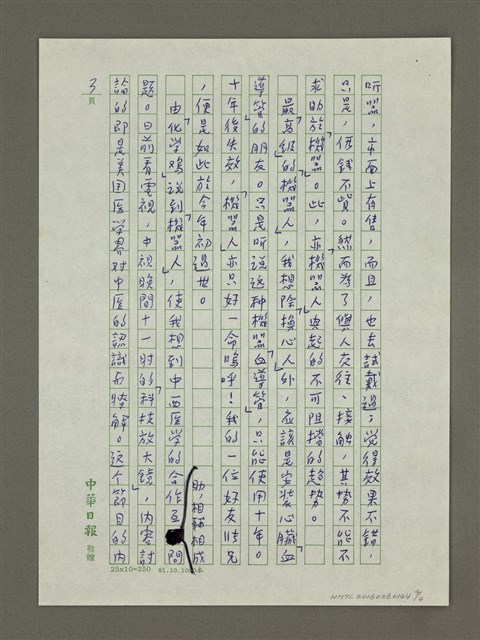 听器，市面上有售，而且，也去試戴过；觉得效果不错，
只是，价錢不貲。然而為了與人交往、接触，其势不能不
求助於「機器」。此，亦機器人興起的不可阻擋的趋势。
最高級的「機器人」，我想除「換心人」外，应該是安装心臟血
導管的朋友。只是听说这种「機器血導管」，只能使用十年。
十年後失效，「機器人」亦只好一命嗚呼！我的一位好友許兄
，便是如此於今年初过世。
由「化学鸡」说到「機器人」，使我想到中西医学的合作互
助，相輔相成
問
題。日前看電視，中视晚間十一时的「科技放大镜」，内容討
論的即是美国医学界对中医的認識与瞭解。这个節目的内
3
頁
中華日報
敬贈
25x10=250
81.10.10
NMTL20160260104